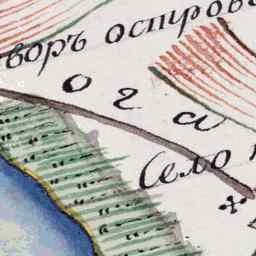 воръ острова
о г а
Село